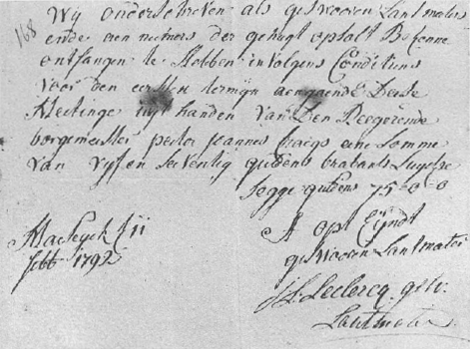 168
Wij onderschreven als geswooren Lantmeters
ende aen nemers der gehugt opholt Bekenne
ontfangen te hebben involgens Conditiens
voor den eersten termijn aengaende Dese
Meetinge uijt handen van Den Regerende
borgemeester peeter joannes Craegs eene Somme
van vyf en seeventig guldens brabants Luyckse
segge guldens 75-0-0
Maeseyck
febr 1792
A opt Eijndt
geswooren Lantmeter
Leclercq gesw.
Lantmeter